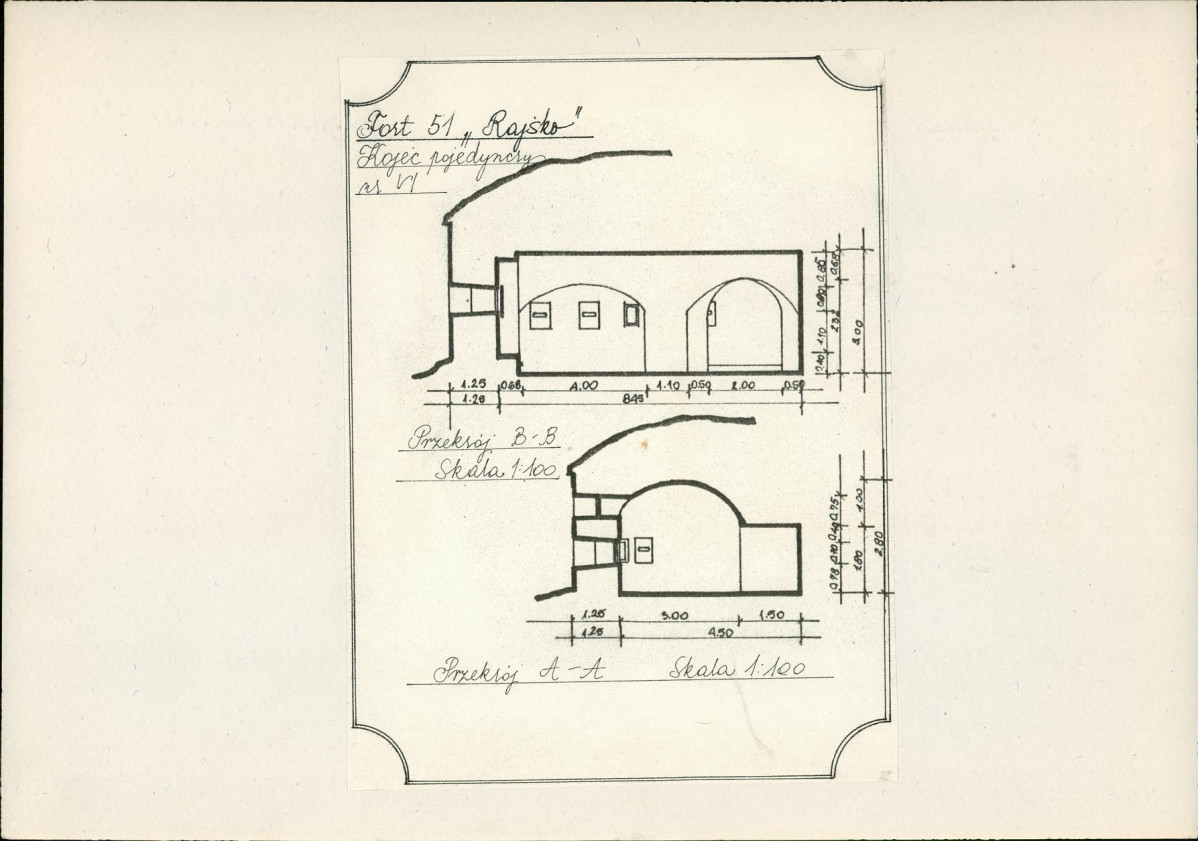 Fort 51 „Rajsko"
Kojec pojedynczy
nr VI
0.65 0.68
2.32 3.00
1.10
0.40
1.25 0.66 4.00 1.10 0.50 2.00 0.50
1.26 845
Przekrój B-B
Skala 1:100
0.75 1.00
0.40
0.70 1.80 2.80
0.78
1.25 3.00 1.50
1.25 4.50
Przekrój A-A Skala 1:100